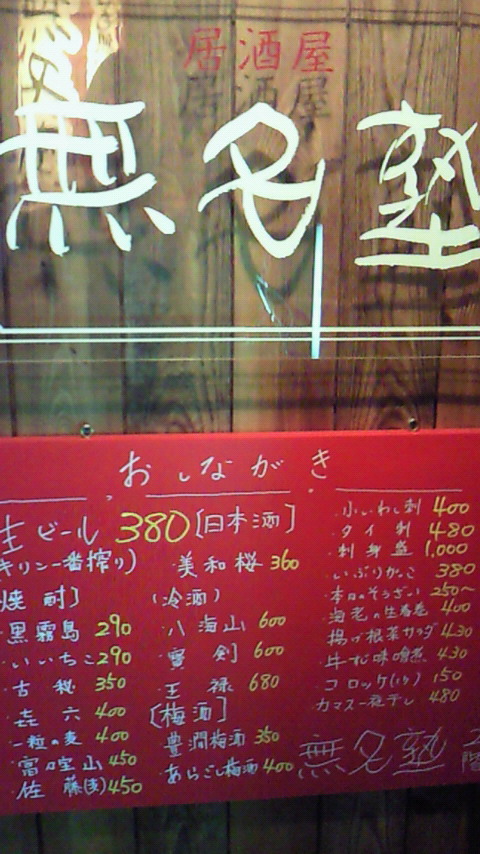 居酒屋
無名塾
おしながき
生ビール 380
キリン一番搾り)
焼酎]
黒霧島 290
いいちこ 290
古秘 350
㐂六 400
一粒の麦 400
富乃宝山 450
佐藤(麦) 450
[日本酒]
美和桜 360
(冷酒)
八海山 600
寶剣 600
王禄 680
[梅酒]
豊潤梅酒 350
あらごし梅酒 400
小いわし刺 400
タイ刺 480
刺身盛 1,000
いぶりがっこ 380
本日のそうざい 250~
海老の生春巻 400
揚げ根菜サラダ 430
牛すじ味噌煮 430
コロッケ(1ケ) 150
カマス一夜干し 480
無名塾